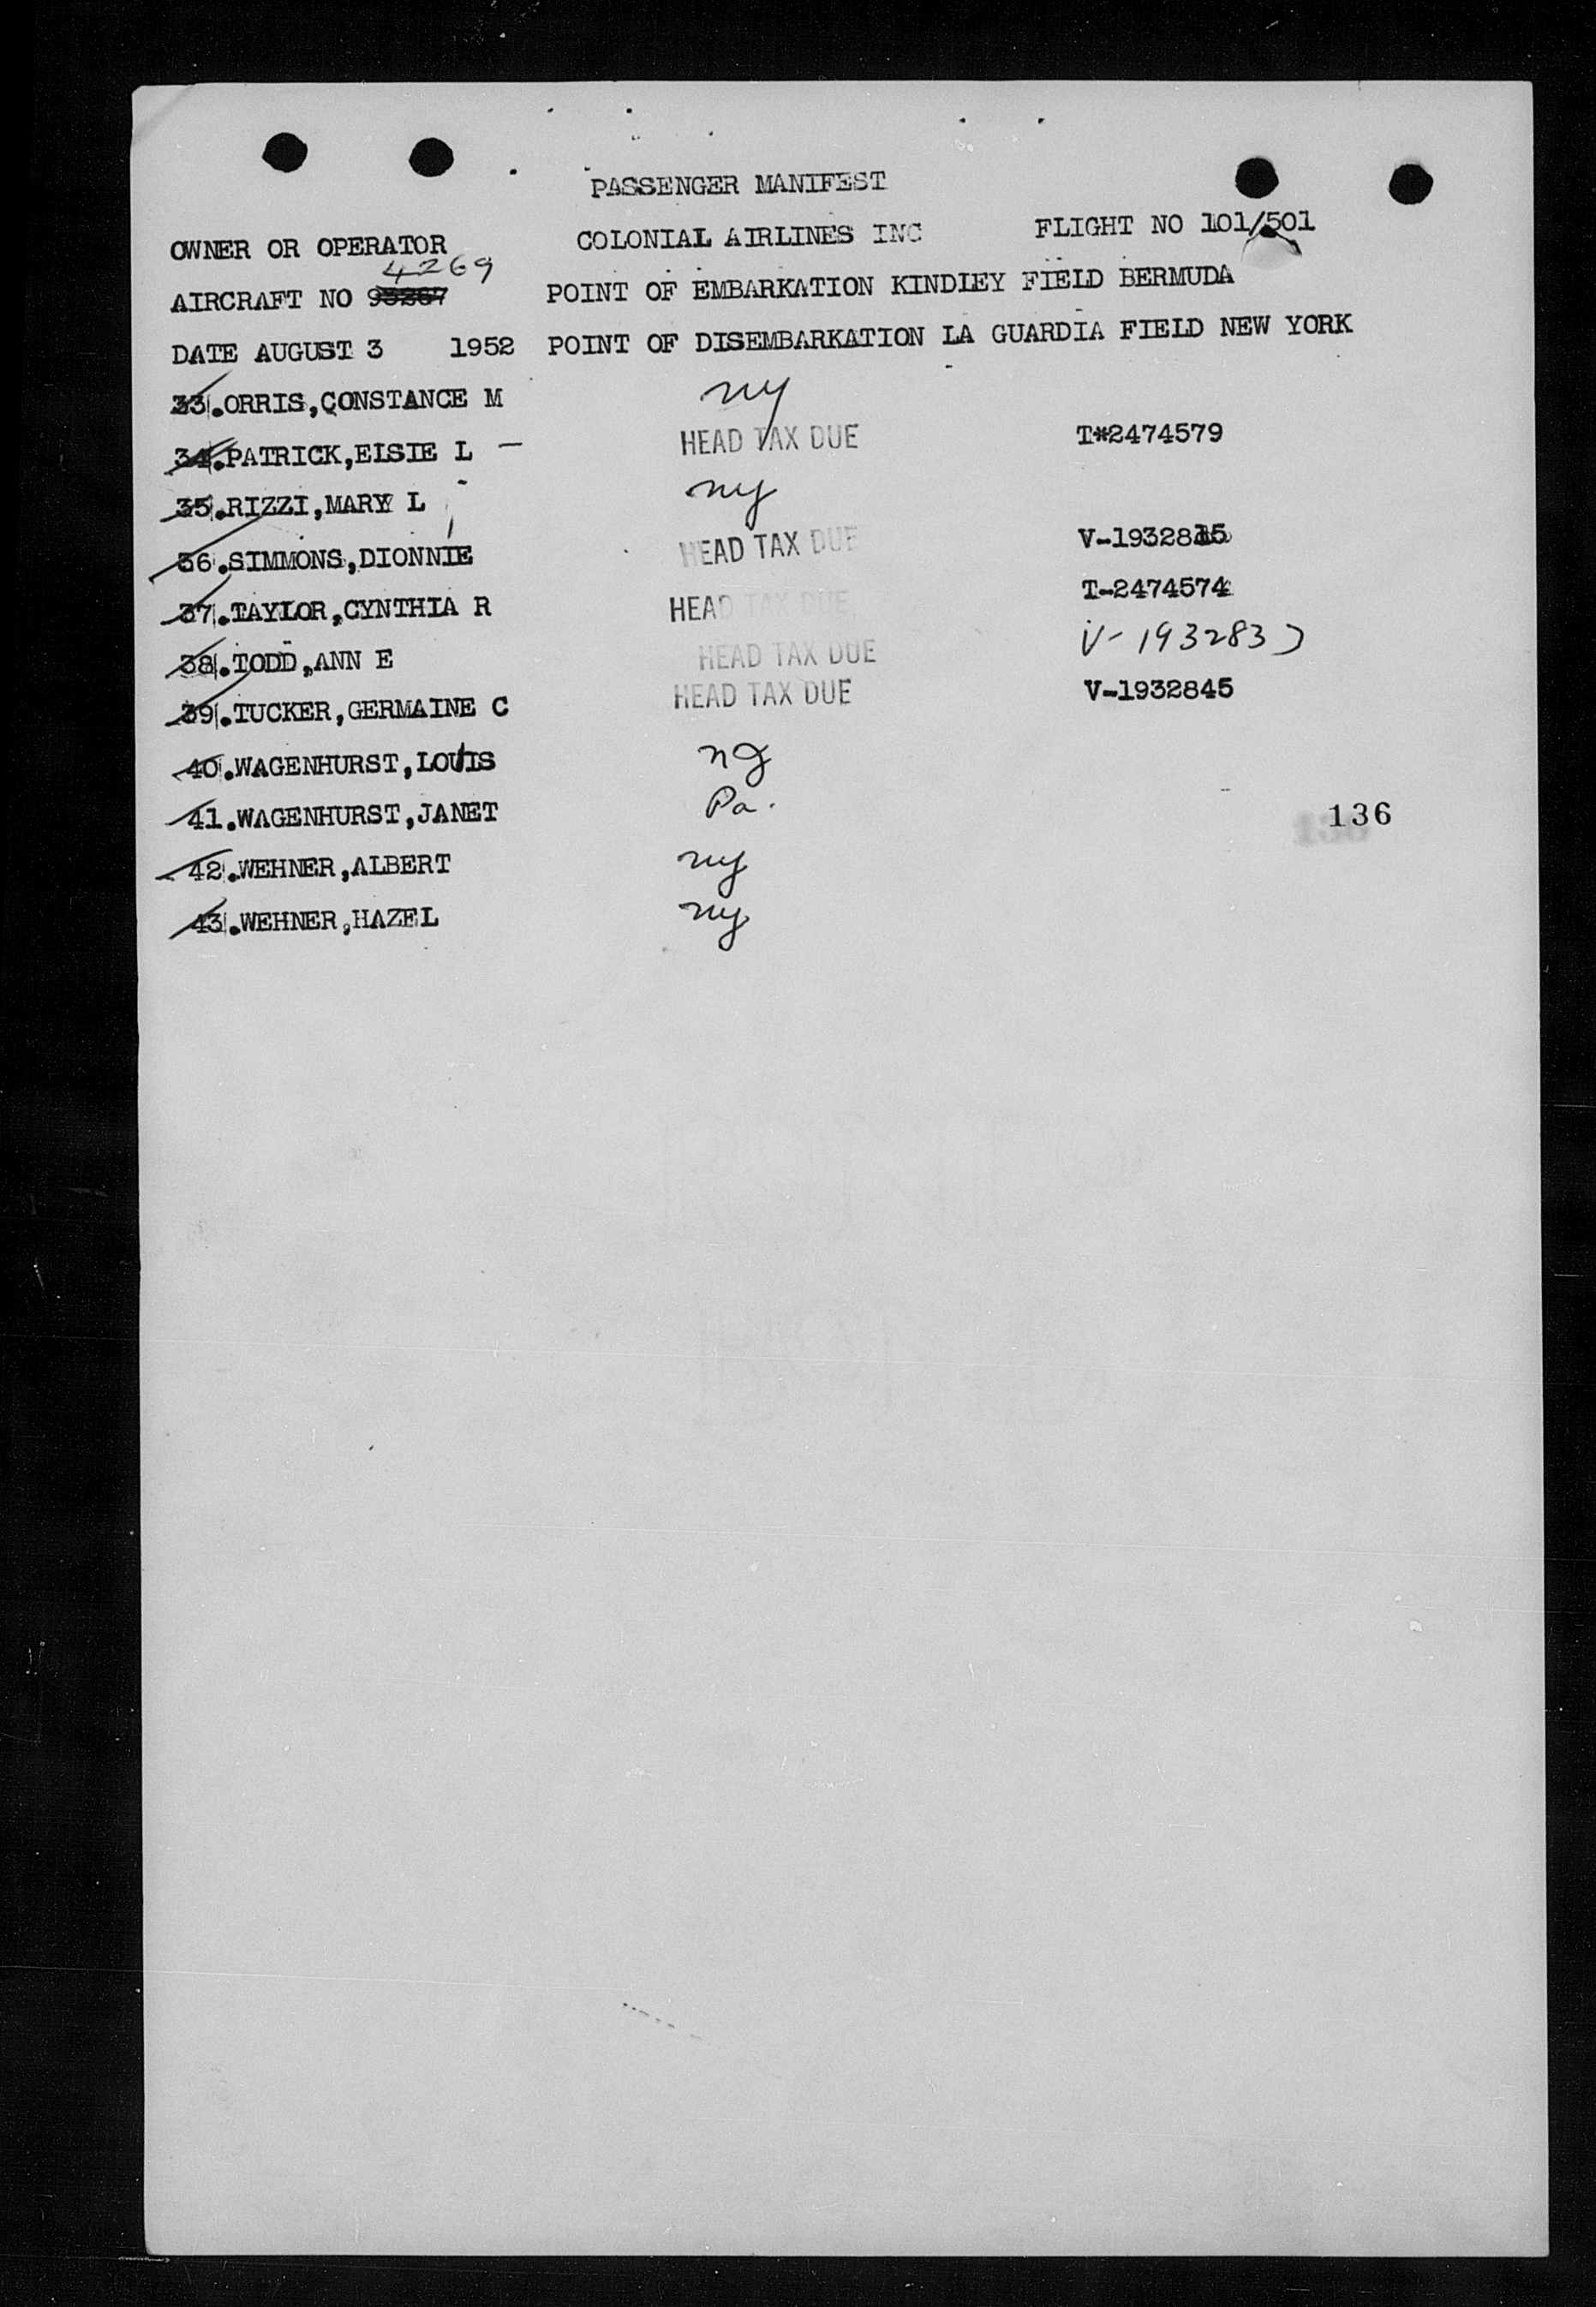 PASSENGER MANIFEST
OWNER OR OPERATOR COLONIAL AIRLINES INC FLIGHT NO 101/501
4269
AIRCRAFT NO 93267 POINT OF EMBARKATION KINDLEY FIELD BERMUDA
DATE AUGUST 3 1952 POINT OF DISEMBARKATION LA GUARDIA FIELD NEW YORK
33.ORRIS,CONSTANCE M ny
34.PATRICK,ELSIE L — HEAD TAX DUE T*2474579
35.RIZZI,MARY L ny
36.SIMMONS,DIONNIE HEAD TAX DUE
37.TAYLOR,CYNTHIA R HEAD TAX DUE T-2474574
38.TODD,ANN E HEAD TAX DUE
39.TUCKER,GERMAINE C HEAD TAX DUE V-1932845
40.WAGENHURST,LOUIS nJ
41.WAGENHURST,JANET Pa. 136
42.WEHNER,ALBERT ny
43.WEHNER,HAZEL ny